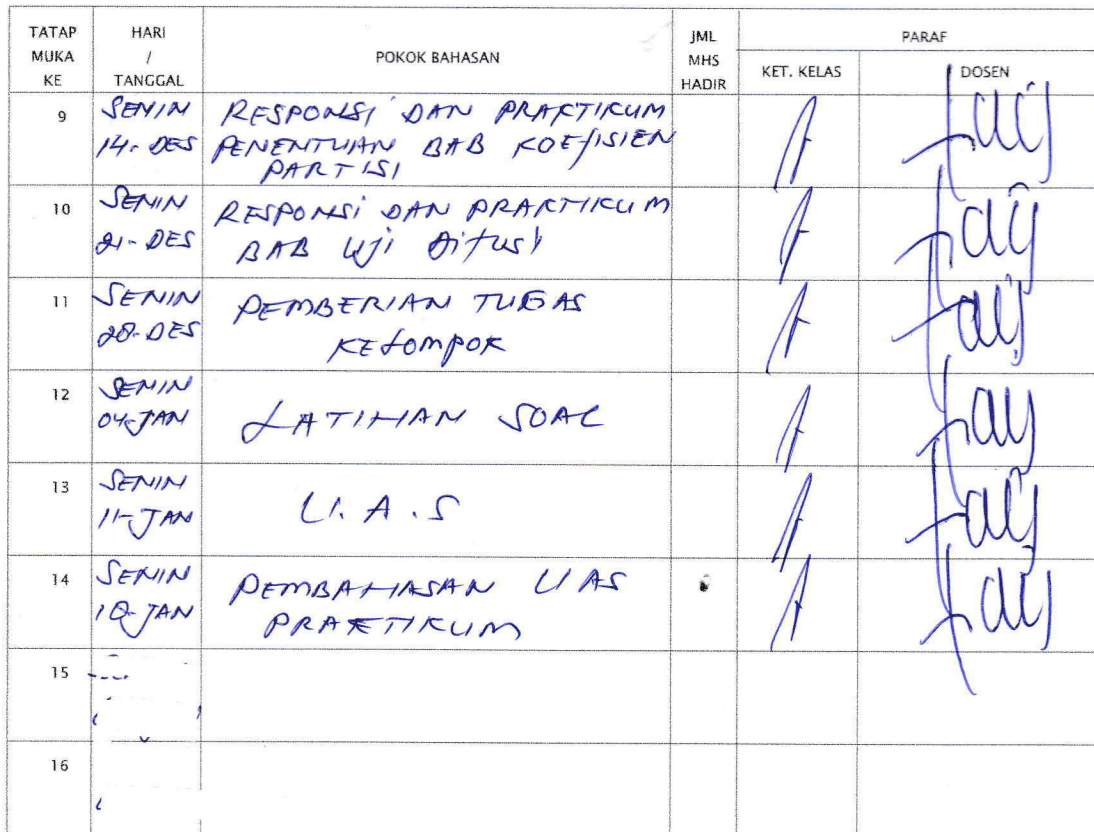 TATAP MUKA KE
HARI / TANGGAL
POKOK BAHASAN
JML MHS HADIR
PARAF
KET. KELAS
DOSEN
9
SENIN
14-DES
RESPONSI DAN PRAKTIKUM
PENENTUAN BAB KOEFISIEN
PARTISI
10
SENIN
21-DES
RESPONSI DAN PRAKTIKUM
BAB Uji Difusi
11
SENIN
28-DES
PEMBERIAN TUGAS
KELOMPOK
12
SENIN
04-JAN
LATIHAN SOAL
13
SENIN
11-JAN
U.A.S
14
SENIN
18-JAN
PEMBAHASAN UAS
PRAKTIKUM
15
16